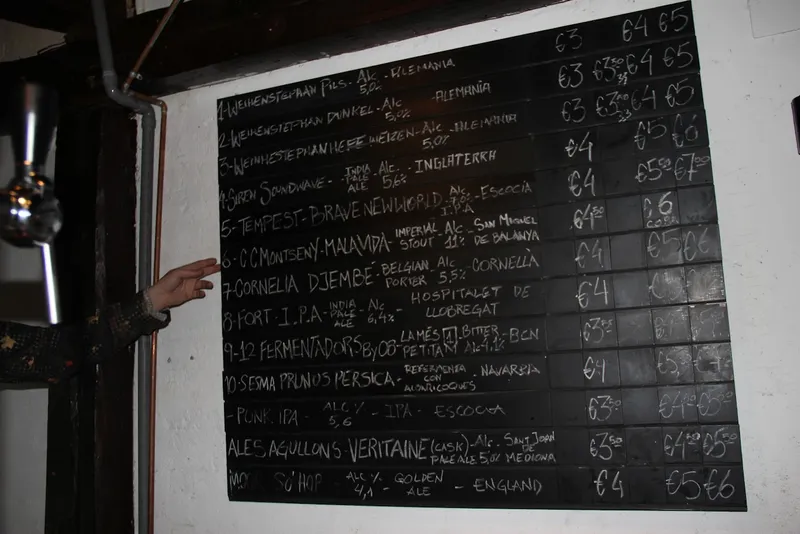 1-WEIHENSTEPHAN PILS-Alc 5,0%-ALEMANIA €3 €4 €5
2-WEIHENSTEPHAN DUNKEL-Alc 5,0%-ALEMANIA €3 €3,50 €4 €5
3-WEINHESTEPHAN HEFEWEIZEN-Alc 5,0%-ALEMANIA €3 €4 €5
4-SIREN SOUNDWAVE-INDIA PALE ALE Alc 5,6%-INGLATERRA €4 €5 €6
5-TEMPEST-BRAVE NEW WORLD Alc I.P.A-ESCOCIA €4 €5,50 €7,00
6-CCMONTSENY-MALAVIDA-IMPERIAL STOUT Alc 11%-SAN MIGUEL DE BALANYA €4,50 €6
7-CORNELIA DJEMBE-BELGIAN PORTER Alc 5,5%-CORNELLA €4 €5 €6
8-FORT-I.P.A-INDIA PALE ALE Alc 6,4%-HOSPITALET DE LLOBREGAT €4
9-12 FERMENTADORS By 08-LA MÉS PETITA BITTER Al 4,1%-BCN €3,50
10-SESMA PRUNUS PERSICA-REFERMENTA CON ALBARICOQUES-NAVARRA €4
-PUNK IPA-ALC% 5,6-IPA-ESCOCIA €3,50 €4,50
ALES AGULLONS-VERITAINE (CASK)-Alc PALE ALE 5,0% SANT JOAN DE MEDIONA €3,50 €4,50 €5,50
SO'HOP-ALC% 4,1-GOLDEN ALE-ENGLAND €4 €5 €6